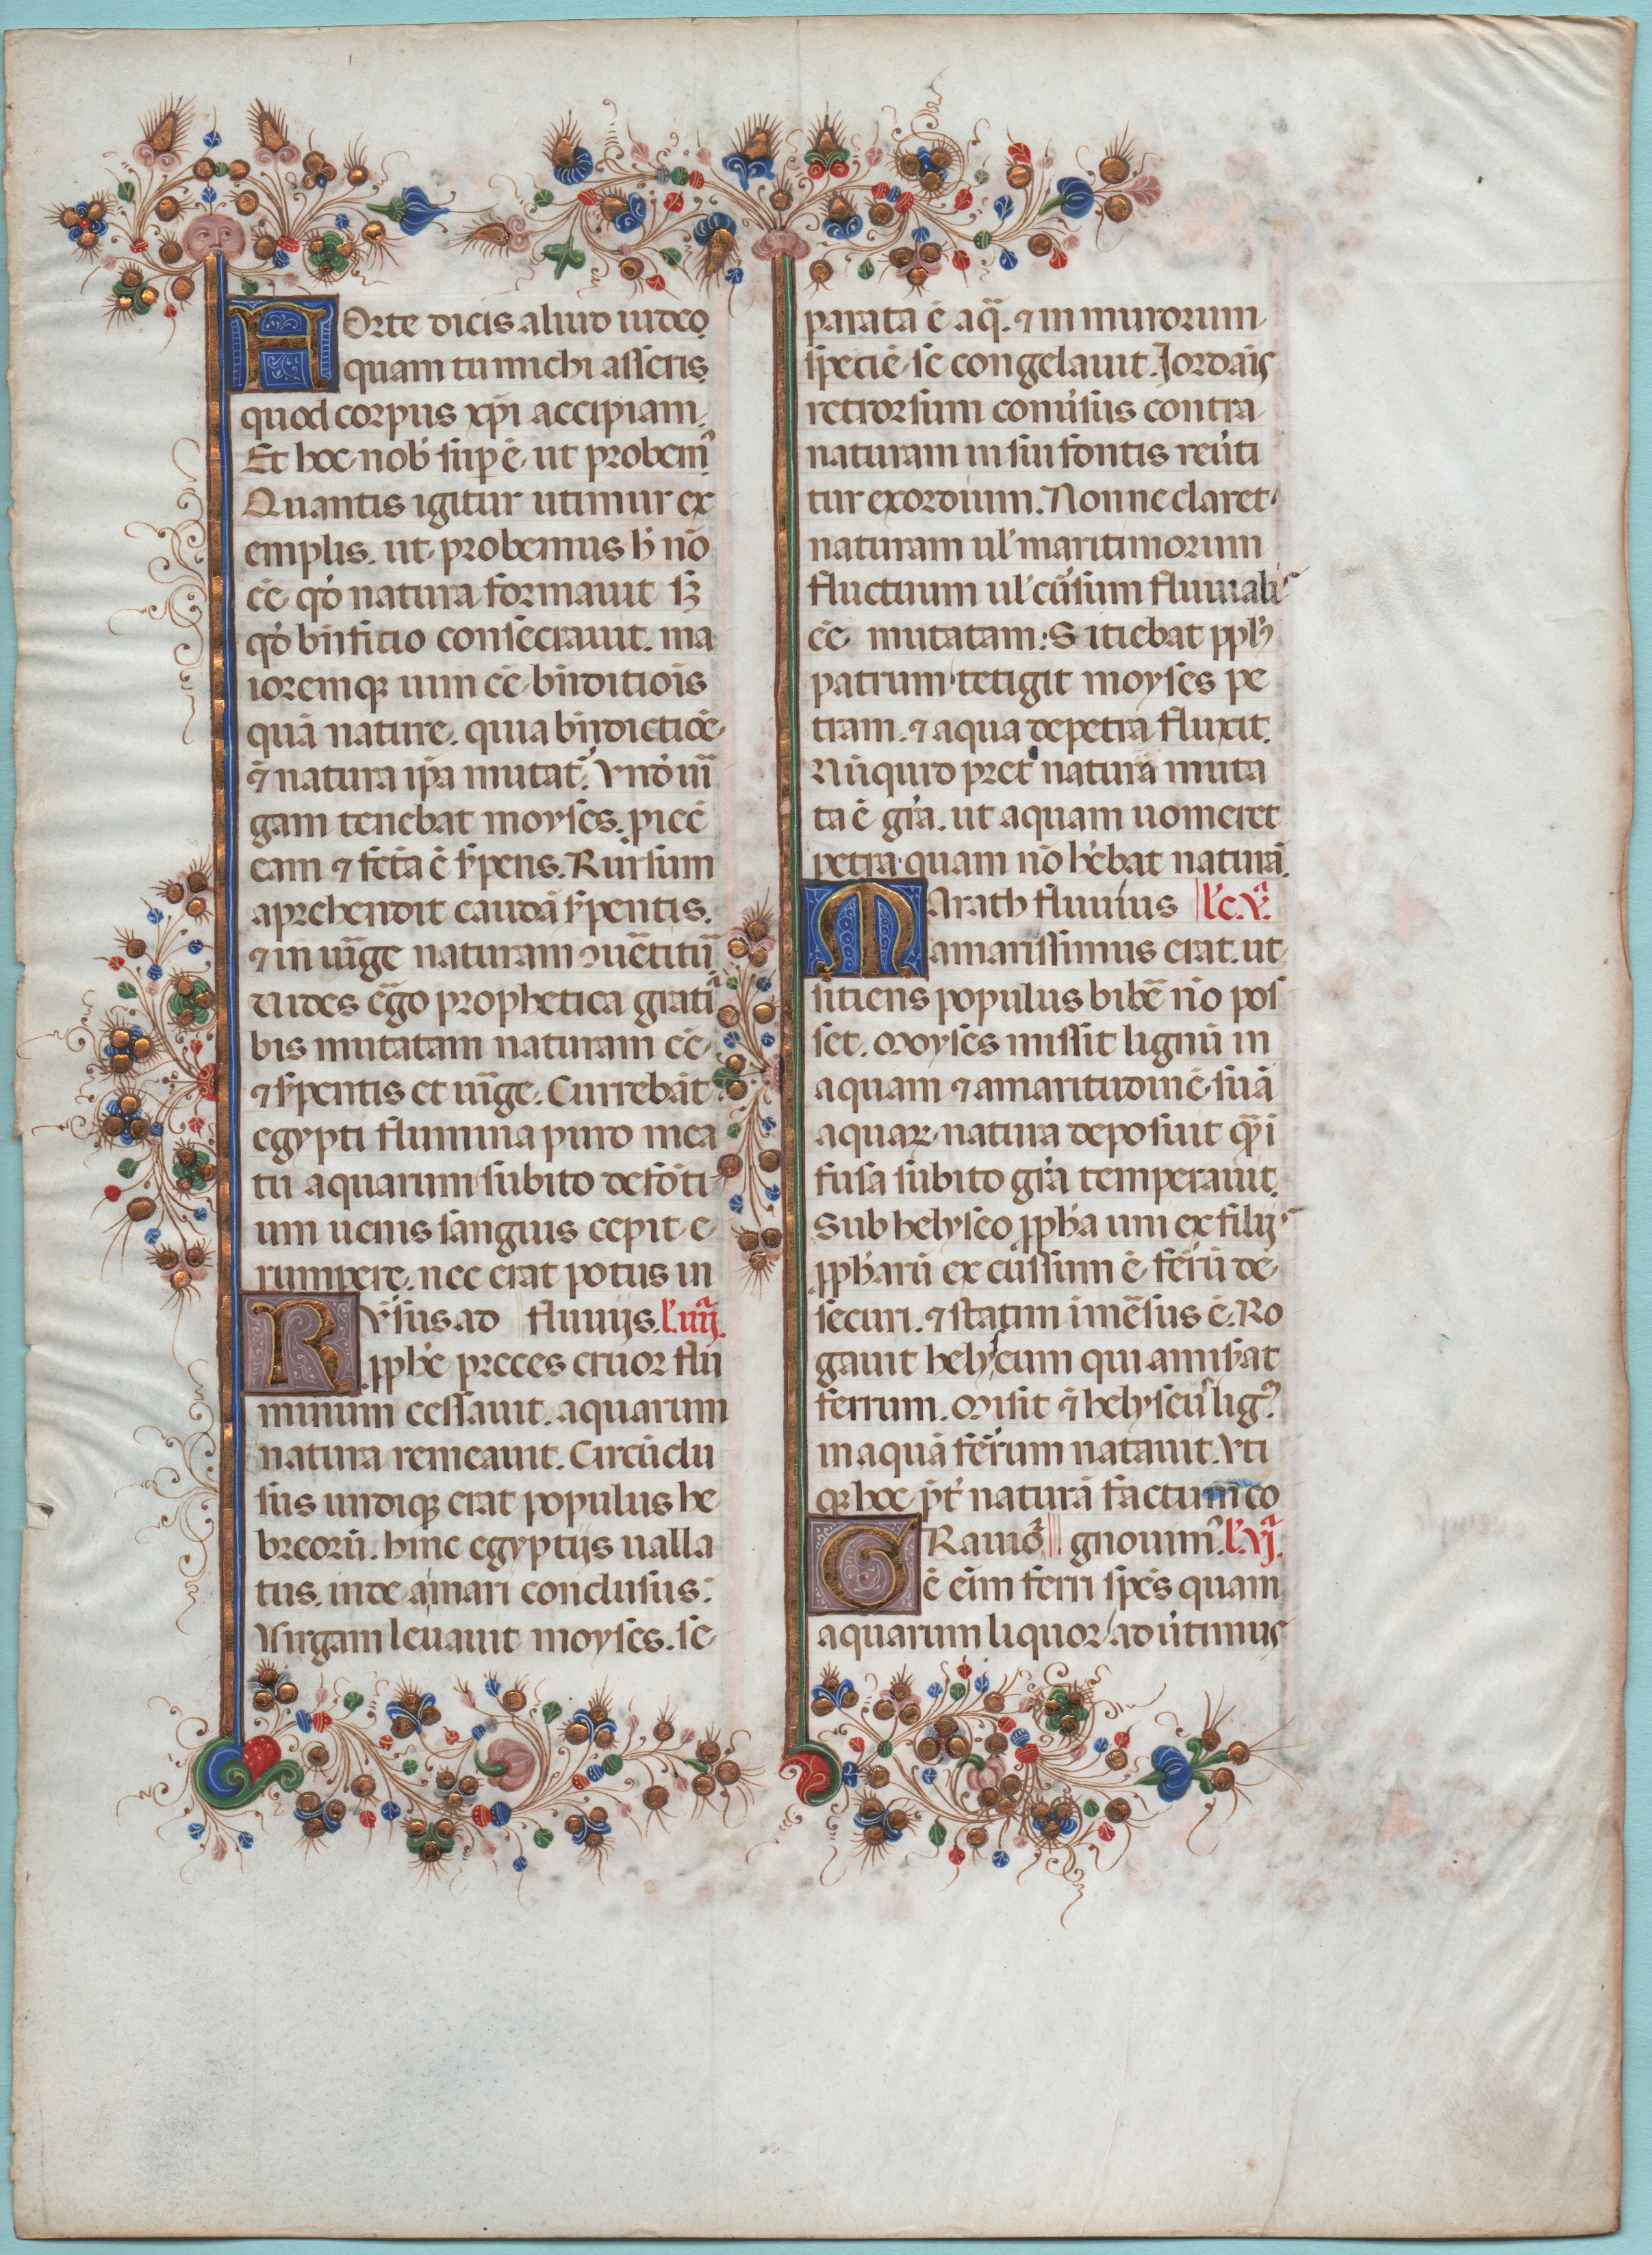 AOrte dicis aliud uideo
quam tu michi asseris
quod corpus xp̄i accipiam.
Et hoc nob̓ suꝑ ē ut probem᷒
Quantis igitur utimur ex
emplis. ut probemus h̄ nō
ēē qđ natura formauit sꝫ
qđ bn̄ficio consecrauit. ma
ioremqꝫ uim ēē bn̄ditiōis
quā nature. quia bn̄dictiōe
⁊ natura ip̄a mutat᷑. Vn̄do uī
gam tenebat moyses. piecē
eam ⁊ fcā ē s̓pens. Rursum
aprehendit caudā s̓pentis.
⁊ in uīge naturam ꝯuētitū
tudes ēgo prophetica gratiᵃ
bis mutatam naturam ēē
⁊ s̓pentis et uīge. Currebāt
egypti flumina puro mea
tu aquarum subito defōti
um uenis sangius cepit e
rumpere. nec erat potus in
RVr̓sus ad fluuijs. l̓.iiijᵃ.
ꝓph̓e preces cruor flu
minum cessauit. aquarum
natura remeauit. Circūclu
sus undiqꝫ erat populus he
breorū. hinc egyptijs ualla
tus. inde amari conclusus:
Virgam leuauit moyses. se
parata ē aq̄. ⁊ in murorum
speciē se congelauit. Jordāis
retrorsum conuīsus contra
naturam in sui fontis reūti
tur exordium. Nonne claret
naturam ul̓ maritimorum
fluctuum ul̓ cūsum fluuialis
ēē mutatam: Sitiebat ppl̓s
patrum tetigit moyses pe
tram. ⁊ aqua de petra fluxit.
Nūquid pret̓ naturā muta
ta ē gr̄a. ut aquam uomeret
petra quam nō h̓ebat naturā.
MArath fluuius l̓c.vᵃ.
amarissimus erat. ut
sitiens populus bibē nō pos
set. Moyses missit lignū in
aquam ⁊ amaritudinē suā
aquaꝝ natura deposuit q̄ i
fusa subito gr̄a temperauit.
Sub helyseo ꝓph̓a uni ex filijs
ꝓph̓arū excussum ē fērū de
securi. ⁊ statim imēsus ē. Ro
gauit helyseum qui amis̓at
ferrum. Misit ⁊ helyseus lig᷒.
in aquā fērum natauit. Vti
qꝫ hoc p̄t̓ naturā factum co
GRauiō gnouim᷒. l̓.vjᵃ.
ē eīm ferri spēs quam
aquarum liquor/aduūtimus